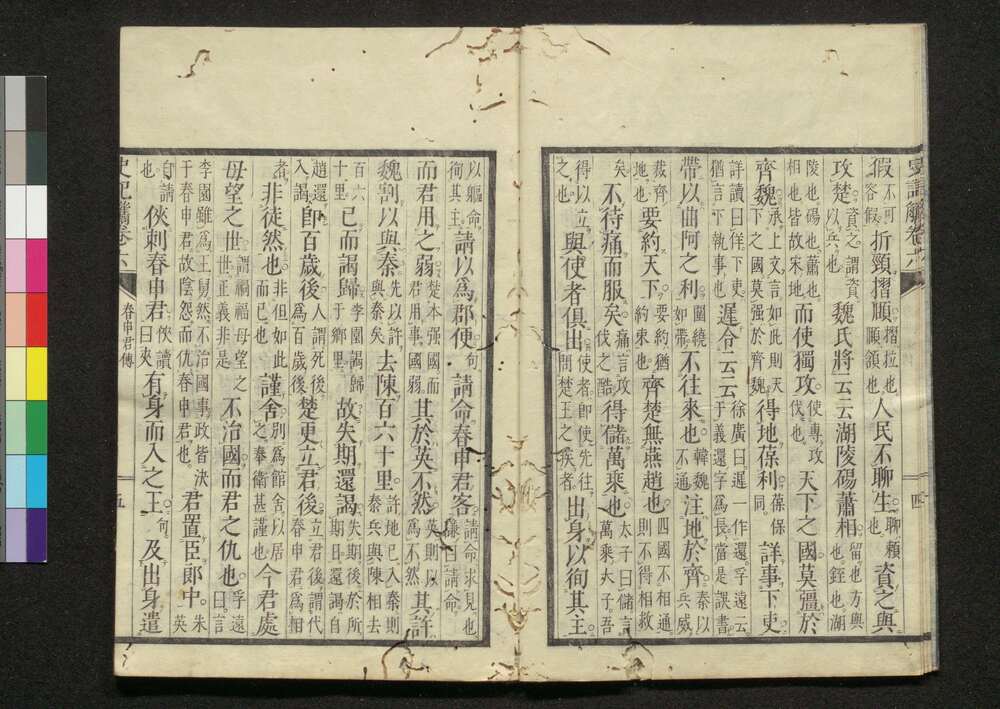 史記觿卷六
四
假不可容假折頸摺頤摺拉也頤頷也人民不聊生聊賴也資之與
攻楚資之謂資以兵也魏氏將云云湖陵碭蕭相留也方與也銍也湖
陵也碭也蕭也相也皆故宋地而使獨攻使專攻伐也天下之國莫彊於
齊魏承上文言如此則天下之國莫强於齊魏得地葆利葆保同詳事下吏
詳讀曰佯下吏猶言下執事也遲令云云徐廣曰遲一作還孚遠云于義還字為長當是誤書
帶以曲阿之利圍繞如帶不往來也韓魏不通注地於齊秦以兵威
齊地也要約天下要約猶約束也齊楚無燕趙也四國不相通則不得相救
矣不待痛而服矣痛言攻伐之酷得儲萬乘也太子曰儲言萬乘大子吾
得以立之也與使者俱出使者即使先往問楚王之疾者出身以徇其主
以軀命徇其主請以為郡便句請命春申君客請命求見也謙曰請命
而君用之弱楚本强國而君用事國弱其於英不然英則以為不然其許
魏割以與秦先以許與秦矣去陳百六十里許地已入秦則秦兵與陳相去
百六十里已而謁歸李園謁歸于鄉里故失期還謁失期後於所期日還謁自
趙還入謁即百歲後人謂死後為百歲後楚更立君後立君後謂代春申君為相
者非徒然也非但如此而已也謹舍別為館舍以居之奉衛甚謹也今君處
母望之世謂禍福母望之世正義非是不治國而君之仇也孚遠曰言
李園雖為王舅然不治國事政皆決于春申君故陰怨而仇春申君也君置臣郎中朱英
自請也俠刺春申君俠讀曰夾有身而入之王句及出身遣
史記觿卷六
春申君傳
五